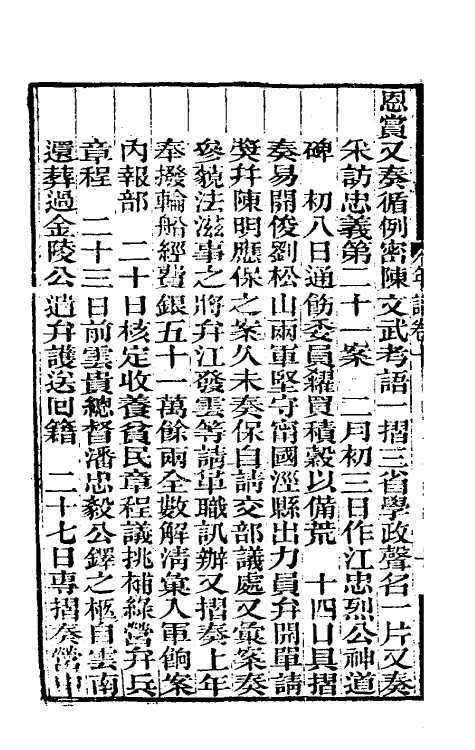 恩賞又奏循例密陳文武考語一摺三省學政聲名一片又奏
采訪忠義第二十一案　二月初三日作江忠烈公神道
碑　初八日通飭委員糴買積穀以備荒　十四日具摺
奏易開俊劉松山兩軍堅守甯國涇縣出力員弁開單請
獎幷陳明應保之案久未奏保自請交部議處又彙案奏
參藐法滋事之將弁江發雲等請革職訊辦又摺奏上年
奉撥輪船經費銀五十一萬餘兩全數解清彙入軍餉案
內報部　二十日核定收養貧民章程議挑補綠營弁兵
章程　二十三日前雲貴總督潘忠毅公鐸之柩自雲南
還葬過金陵公遣弁護送回籍　二十七日專摺奏營中
年譜卷十